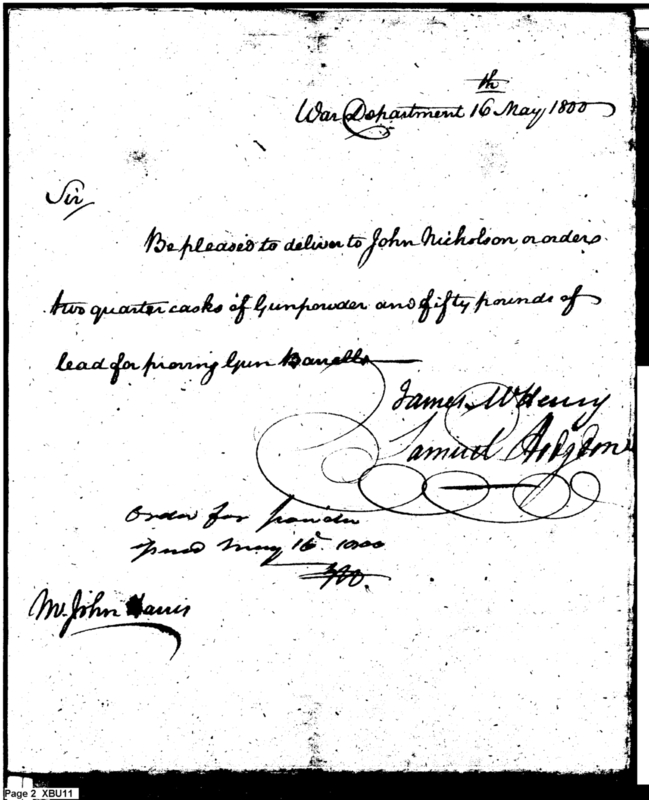 War Department 16th May 1800
Sir
Be pleased to deliver to John Nicholson or order
two quarter casks of Gunpowder and fifty pounds of
lead for proving Gun Barrells
James McHenry
Samuel Hodgdon
Order for powder
May 16 1800
Mr. John Harris
Page 2 XBU11